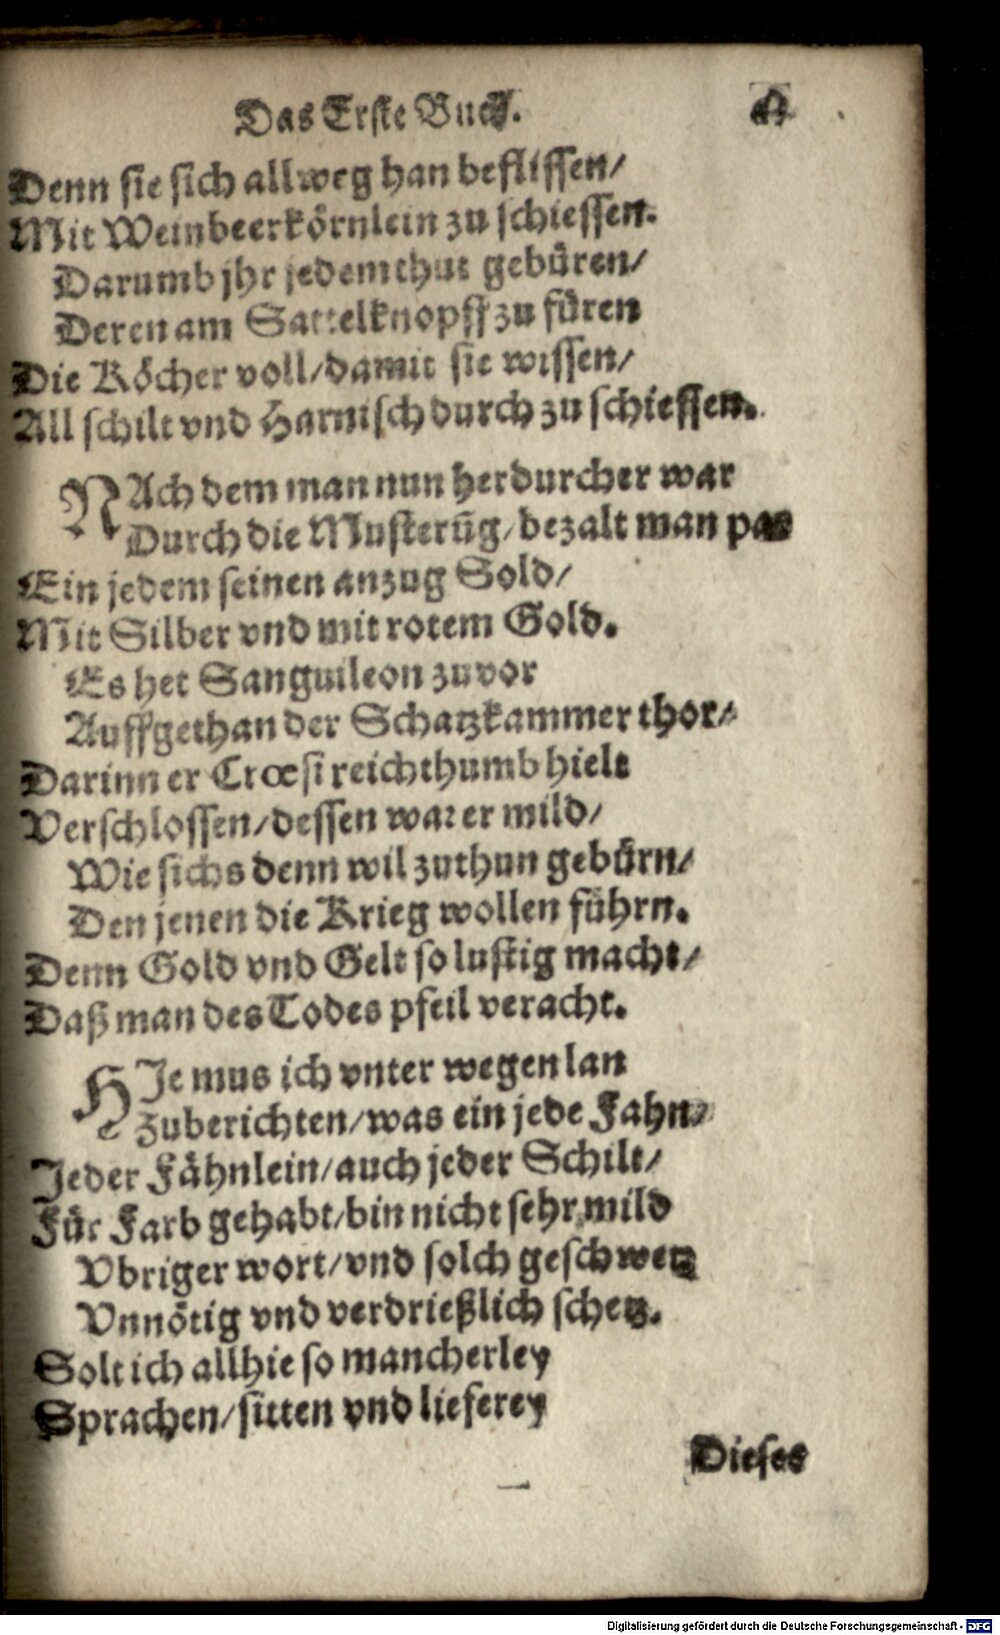 Das Erste Buch.
Denn sie sich allweg han beflissen/
Mit Weinbeerkörnlein zu schiessen.
Darumb jhr jedem thut gebüren/
Deren am Sattelknopff zu füren
Die Köcher voll/damit sie wissen/
All schilt vnd Harnisch durch zu schiessen.
NAch dem man nun herdurcher war
Durch die Musterūg/bezalt man par
Ein jedem seinen anzug Sold/
Mit Silber vnd mit rotem Gold.
Es het Sanguileon zuvor
Auffgethan der Schatzkammer thor/
Darinn er Crœsi reichthumb hielt
Verschlossen/dessen war er mild/
Wie sichs denn wil zuthun gebürn/
Den jenen die Krieg wollen führn.
Denn Gold vnd Gelt so lustig macht/
Daß man des Todes pfeil veracht.
HJe mus ich vnter wegen lan
Zuberichten/was ein jede Fahn/
Jeder Fähnlein/auch jeder Schilt/
Für Farb gehabt/bin nicht sehr mild
Vbriger wort/vnd solch geschwetz
Vnnötig vnd verdrießlich schetz.
Solt ich allhie so mancherley
Sprachen/sitten vnd lieferey
Dieses
Digitalisierung gefördert durch die Deutsche Forschungsgemeinschaft - DFG